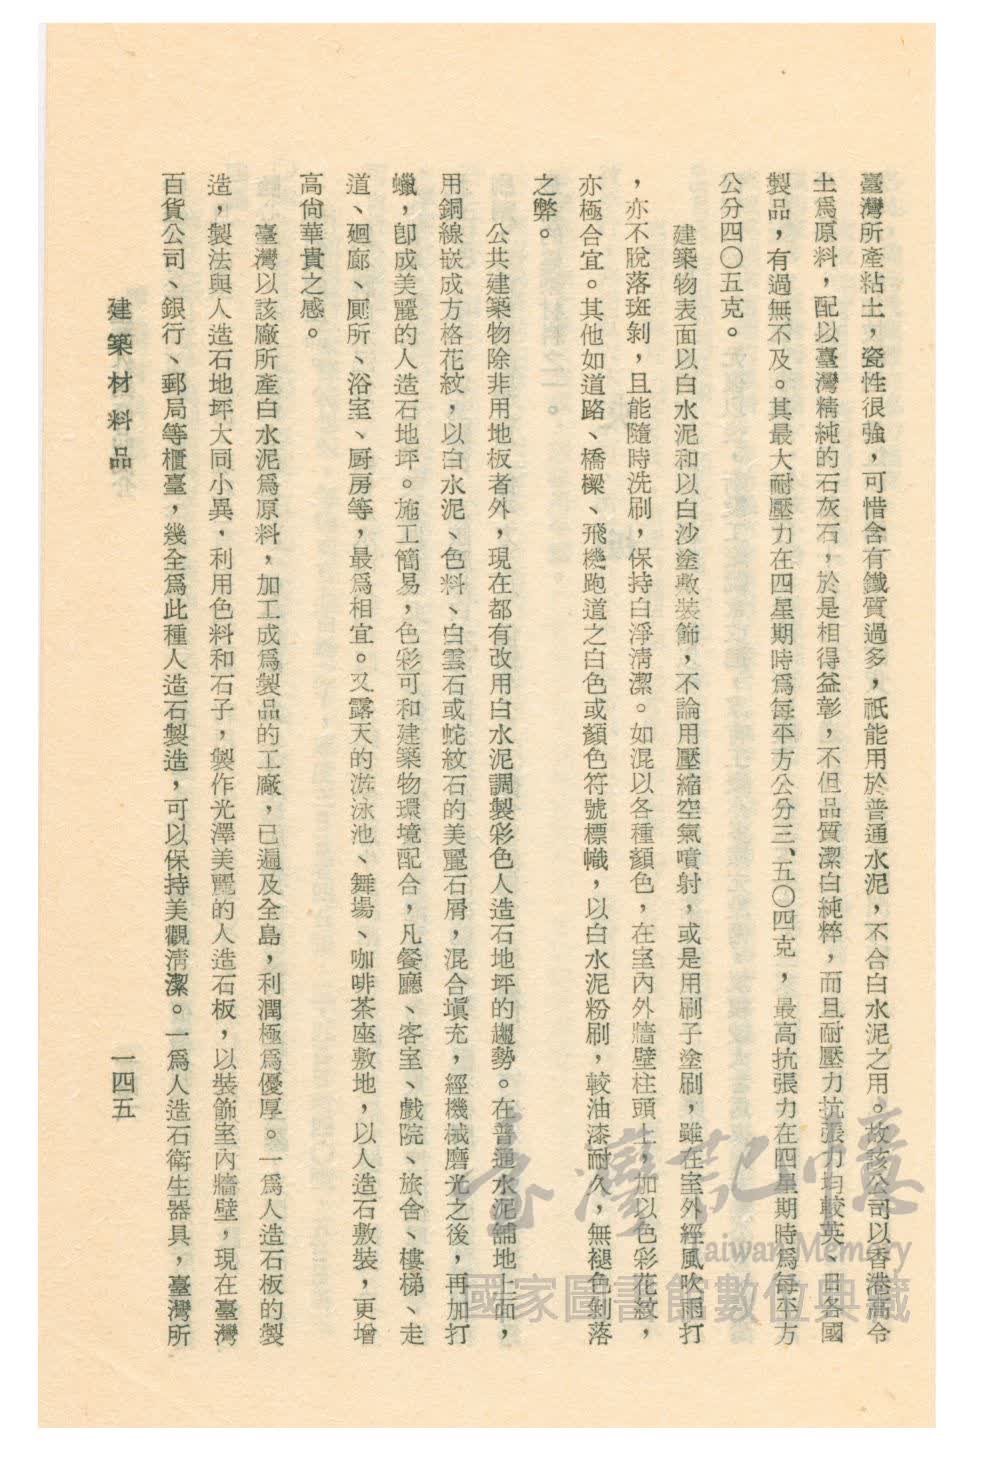 臺灣所產粘土，瓷性很強，可惜含有鐵質過多，祇能用於普通水泥，不合白水泥之用。故該公司以香港高令
土爲原料，配以臺灣精純的石灰石，於是相得益彰，不但品質潔白純粹，而且耐壓力抗張力均較英、日各國
製品，有過無不及。其最大耐壓力在四星期時爲每平方公分三、五〇四克，最高抗張力在四星期時爲每平方
公分四〇五克。
建築物表面以白水泥和以白沙塗敷裝飾，不論用壓縮空氣噴射，或是用刷子塗刷，雖在室外經風吹雨打
，亦不脫落斑剝，且能隨時洗刷，保持白淨淸潔。如混以各種顏色，在室內外牆壁柱頭上，加以色彩花紋，
亦極合宜。其他如道路、橋樑、飛機跑道之白色或顏色符號標幟，以白水泥粉刷，較油漆耐久，無褪色剝落
之弊。
公共建築物除非用地板者外，現在都有改用白水泥調製彩色人造石地坪的趨勢。在普通水泥舖地上面，
用銅線嵌成方格花紋，以白水泥、色料、白雲石或蛇紋石的美麗石屑，混合塡充，經機械磨光之後，再加打
蠟，卽成美麗的人造石地坪。施工簡易，色彩可和建築物環境配合，凡餐廳、客室、戲院、旅舍、樓梯、走
道、廻廊、厠所、浴室、厨房等，最爲相宜。又露天的游泳池、舞場、咖啡茶座敷地，以人造石敷裝，更增
高尙華貴之感。
臺灣以該廠所產白水泥爲原料，加工成爲製品的工廠，已遍及全島，利潤極爲優厚。一爲人造石板的製
造，製法與人造石地坪大同小異．利用色料和石子，製作光澤美麗的人造石板，以裝飾室內牆壁，現在臺灣
百貨公司、銀行、郵局等櫃臺，幾全爲此種人造石製造，可以保持美觀淸潔。一爲人造石衛生器具，臺灣所
建築材料品
一四五
臺灣記憶
Taiwan Memory
國家圖書館數位典藏